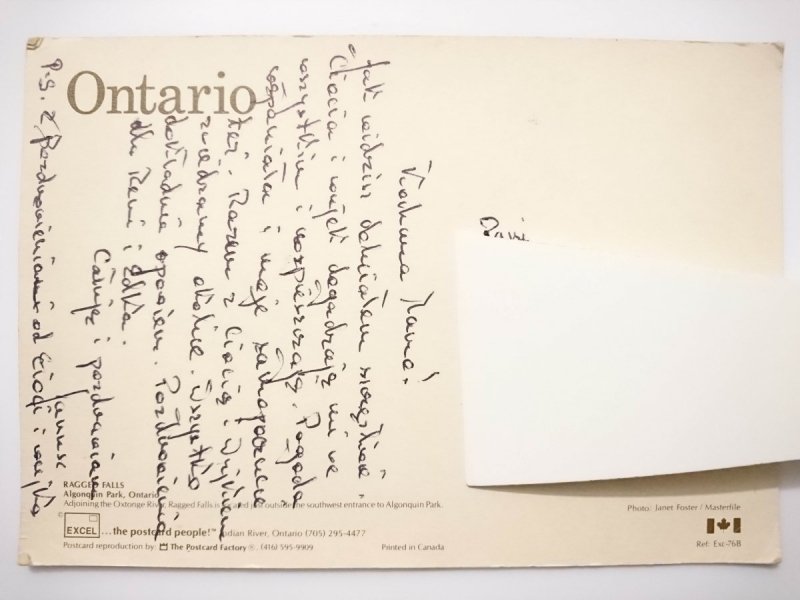 Ontario
Kochana Mamo!
Jak widzisz doleciałem szczęśliwie.
Ciocia i wujek dogadzają mi we
wszystkim i rozpieszczają. Pogoda
wspaniała i moje samopoczucie
też. Razem z Ciocią i Wujkiem
zwiedzamy okolice. Wszystko
dokładnie opowiem. Pozdrowienia
dla Reni i Edka.
Całuję i pozdrawiam
Janusz
P.S. Z pozdrowieniami od Cioci i wujka
RAGGED FALLS
Algonquin Park, Ontario
Adjoining the Oxtonge River, Ragged Falls is just outside the southwest entrance to Algonquin Park.
EXCEL ...the postcard people!™ Indian River, Ontario (705) 295-4477
Postcard reproduction by The Postcard Factory ®. (416) 595-9909
Printed in Canada
Photo: Janet Foster / Masterfile
Ref: Exc-76B